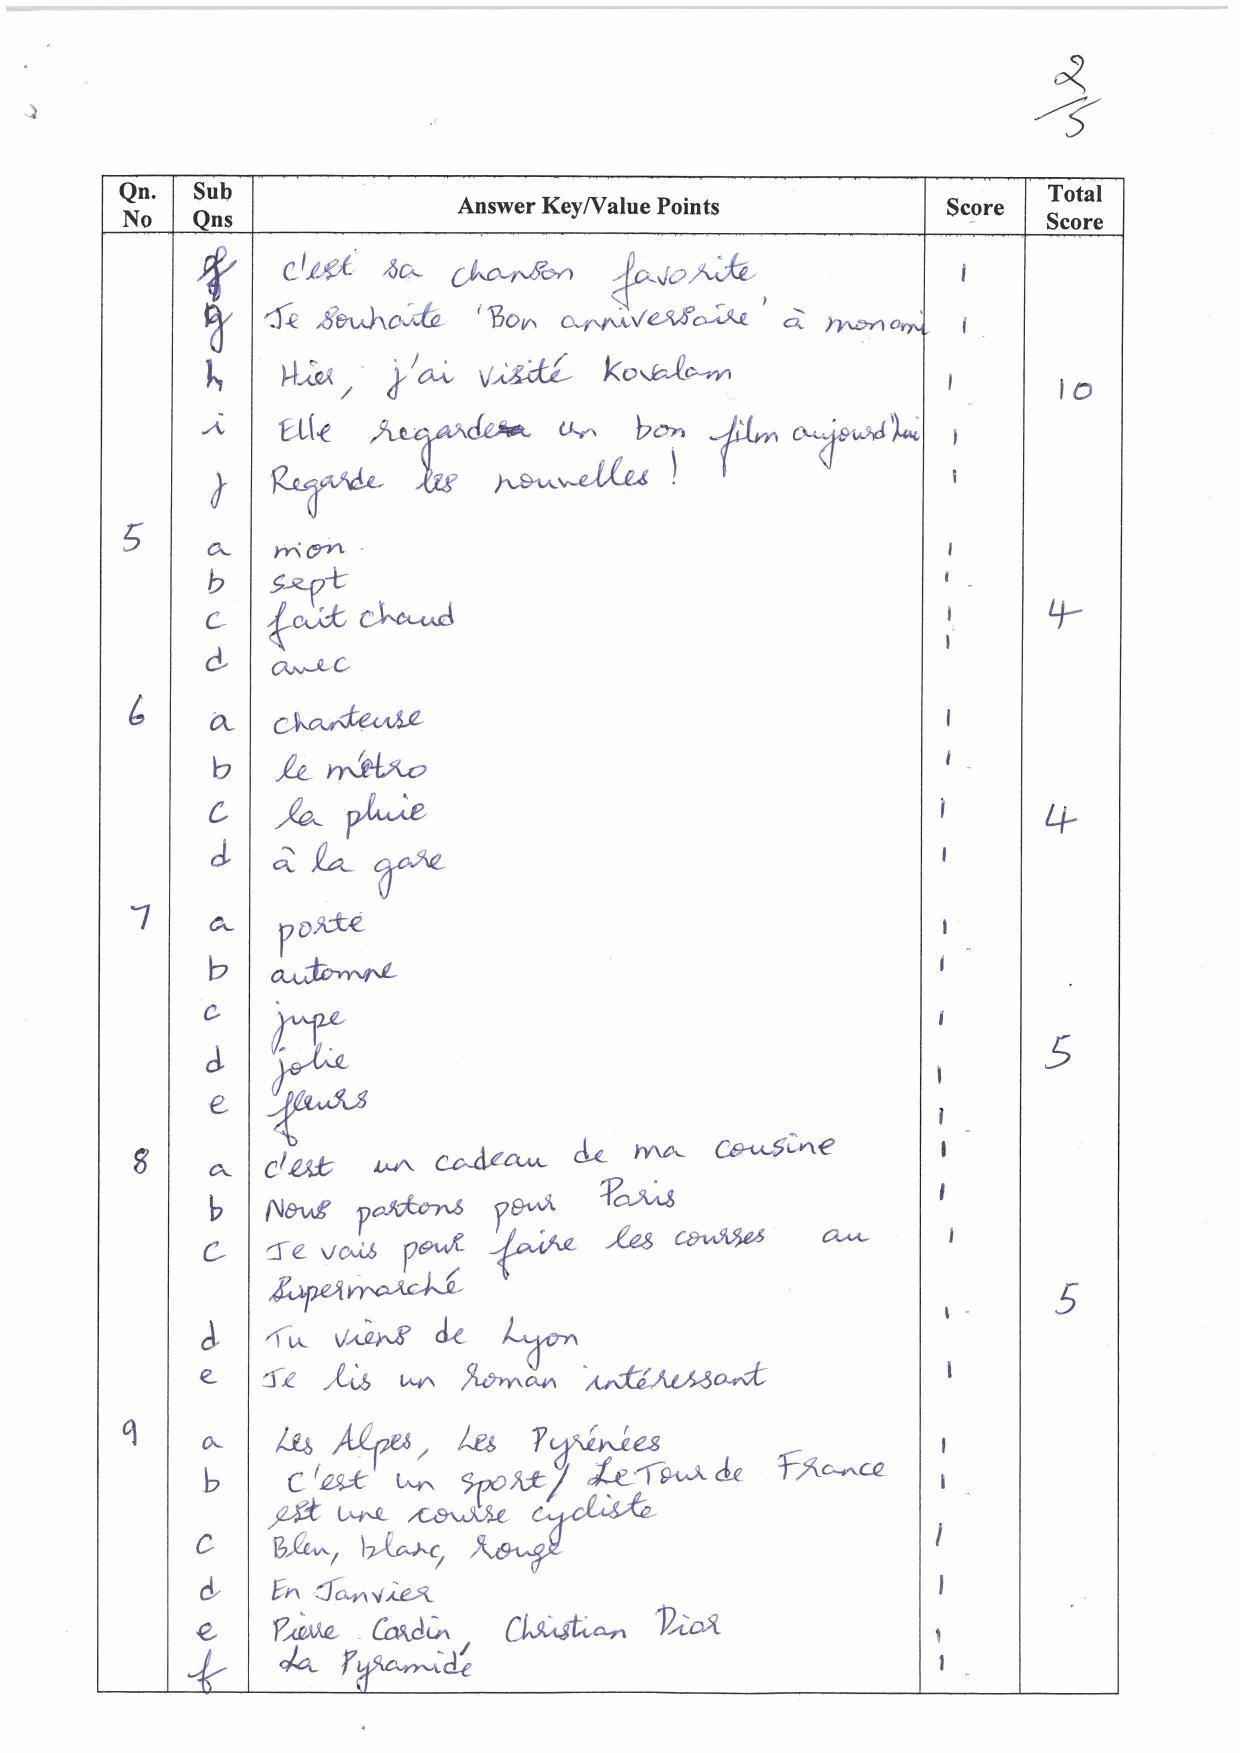 2/5
Qn. No Sub Qns Answer Key/Value Points Score Total Score
f c'est sa chanson favorite 1
g Je souhaite 'Bon anniversaire' à mon ami 1
h Hier, j'ai visité Kovalam 1 10
i Elle regarde un bon film aujourd'hui 1
j Regarde les nouvelles ! 1
5 a mon 1
b sept 1
c fait chaud 1 4
d avec 1
6 a chanteuse 1
b le métro 1
c la pluie 1 4
d à la gare 1
7 a porte 1
b automne 1
c jupe 1
d jolie 1 5
e fleurs 1
8 a c'est un cadeau de ma cousine 1
b Nous partons pour Paris 1
c Je vais pour faire les courses au 1
Supermarché 5
d Tu viens de Lyon 1
e Je lis un roman intéressant 1
9 a Les Alpes, Les Pyrénées 1
b C'est un sport/ Le Tour de France 1
est une course cycliste
c Bleu, blanc, rouge 1
d En Janvier 1
e Pierre Cardin, Christian Dior 1
f La Pyramide 1